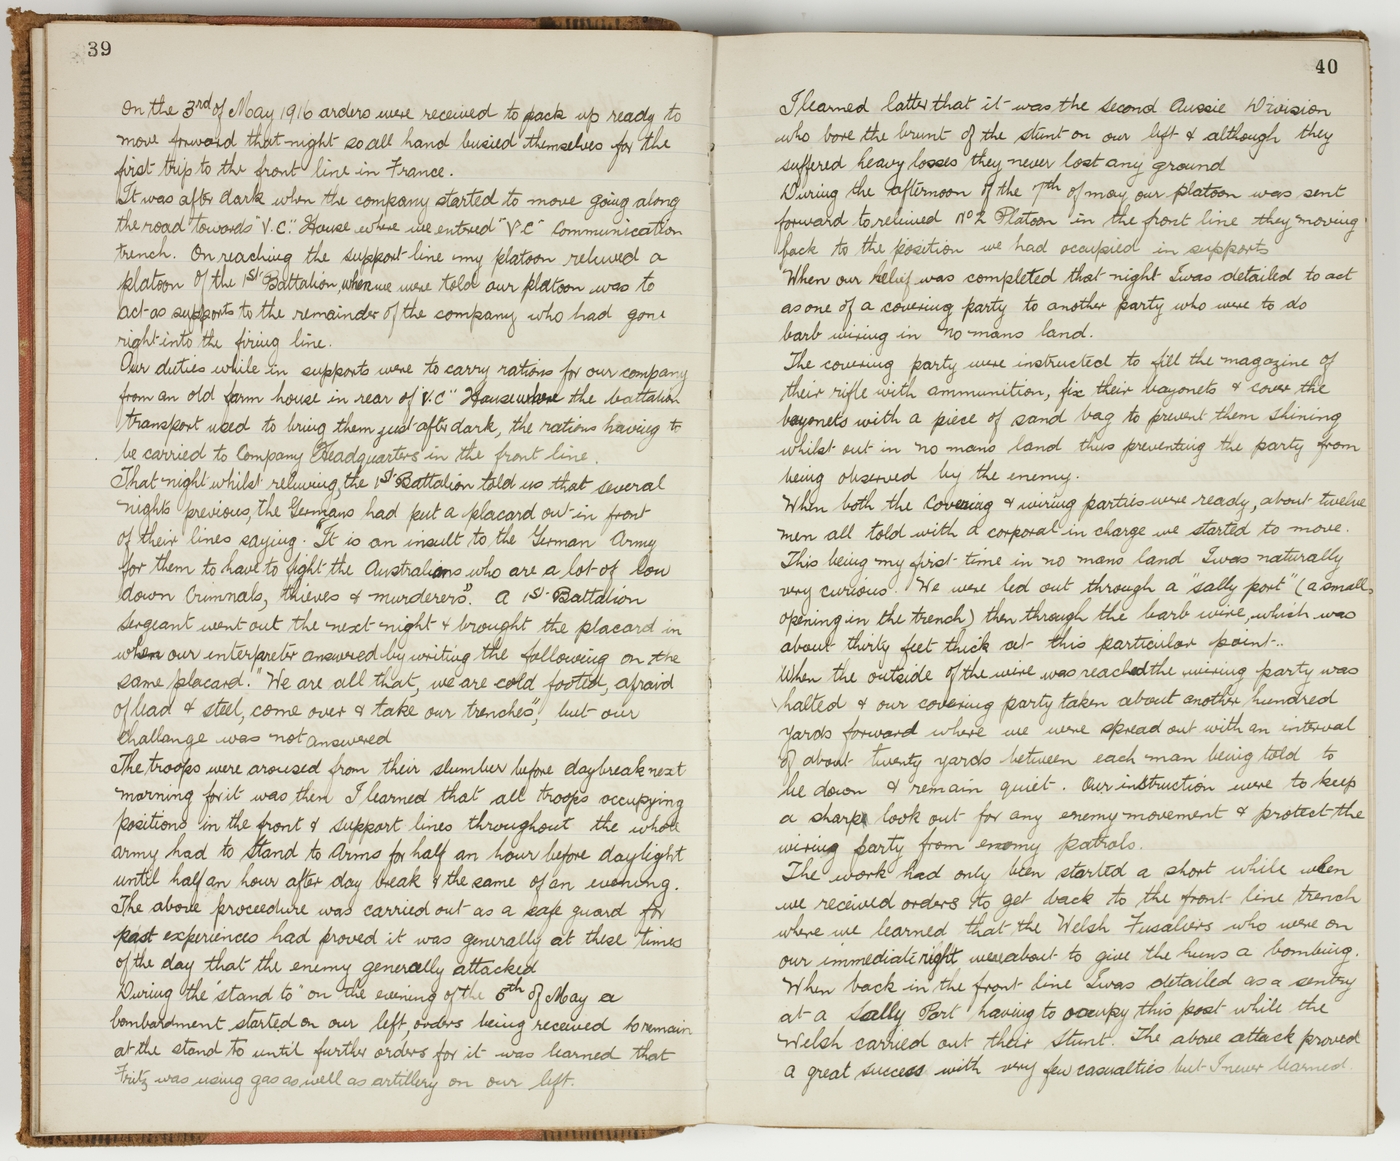 39
On the 3rd of May 1916 orders were received to pack up ready to
move forward that night so all hand busied themselves for the
first trip to the front line in France.
It was after dark when the company started to move going along
the road towards "V.C." House where we entered "V.C" Communication
trench. On reaching the support line my platoon relieved a
platoon of the 1st Battalion, when we were told our platoon was to
act as supports to the remainder of the company who had gone
right into the firing line.
Our duties while in supports were to carry rations for our company
from an old farm house in rear of "V.C" House where the battalion
transport used to bring them just after dark, the rations having to
be carried to Company Headquarters in the front line.
That night whilst relieving, the 1st Battalion told us that several
nights previous, the Germans had put a placard out in front
of their lines saying. "It is an insult to the German Army
for them to have to fight the Australians who are a lot of low
down Criminals, thieves & murderers". A 1st Battalion
Sergeant went out the next night & brought the placard in
when our interpreter answered by writing the following on the
same placard. "We are all that, we are cold footed, afraid
of lead & steel, come over & take our trenches", but our
challange was not answered
The troops were aroused from their slumber before daybreak next
morning for it was then I learned that all troops occupying
positions in the front & support lines throughout the whole
army had to Stand to Arms for half an hour before daylight
until half an hour after day break & the same of an evening.
The above proceedure was carried out as a safe guard for
past experiences had proved it was generally at these times
of the day that the enemy generally attacked
During the "stand to" on the evening of the 6th of May a
bombardment started on our left, orders being received to remain
at the stand to until further orders for it was learned that
Fritz was using gas as well as artillery on our left.
40
I learned latter that it was the second Aussie Division
who bore the brunt of the stunt on our left & although they
suffered heavy losses they never lost any ground
During the afternoon of the 7th of may our platoon was sent
forward to relieved No 2 Platoon in the front line they moving
back to the position we had occupied in supports
When our relief was completed that night I was detailed to act
as one of a covering party to another party who were to do
barb wiring in no mans land.
The covering party were instructed to fill the magazine of
their rifle with ammunition, fix their bayonets & cover the
bayonets with a piece of sand bag to prevent them shining
whilst out in no mans land thus preventing the party from
being observed by the enemy.
When both the Covering & wiring parties were ready, about twelve
men all told with a corporal in charge we started to move.
This being my first time in no mans land I was naturally
very curious. We were led out through a "sally port" (a small
opening in the trench) then through the barb wire, which was
about thirty feet thick at this particular point..
When the outside of the wire was reached the wiring party was
halted & our covering party taken about another hundred
yards forward where we were spread out with an interval
of about twenty yards between each man being told to
lie down & remain quiet. Our instruction were to keep
a sharp look out for any enemy movement & protect the
wiring party from enemy patrols.
The work had only been started a short while when
we received orders to get back to the front line trench
where we learned that the Welsh Fusaliers who were on
our immediate right were about to give the huns a bombing.
When back in the front line I was detailed as a sentry
at a Sally Port having to occupy this post while the
Welsh carried out their stunt. The above attack proved
a great success with very few casualties but I never learned